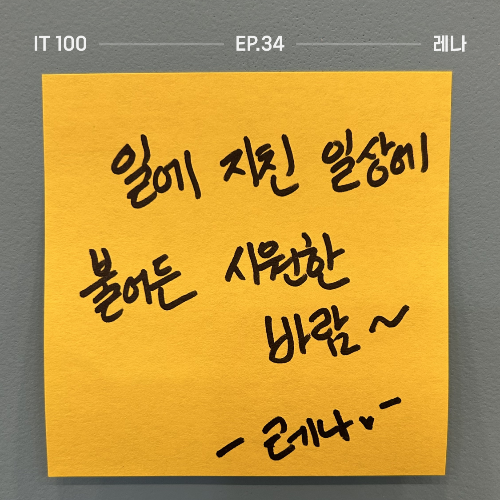 IT 100 EP.34 레나
일에 지친 일상에
불어든 시원한
바람~
- 레나♥ -